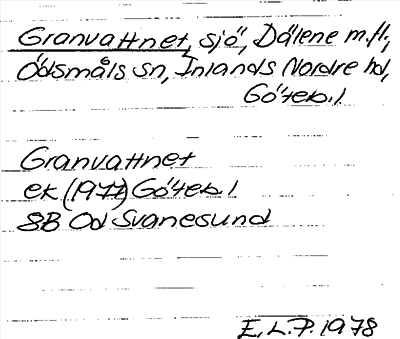 Granvattnet, sjö, Dälene m.fl.,
Ödsmåls sn, Inlands Nordre hd,
Göteb. l
Granvattnet
ek (1977) Göteb. l
8B Od Svanesund
E.L.P. 1978